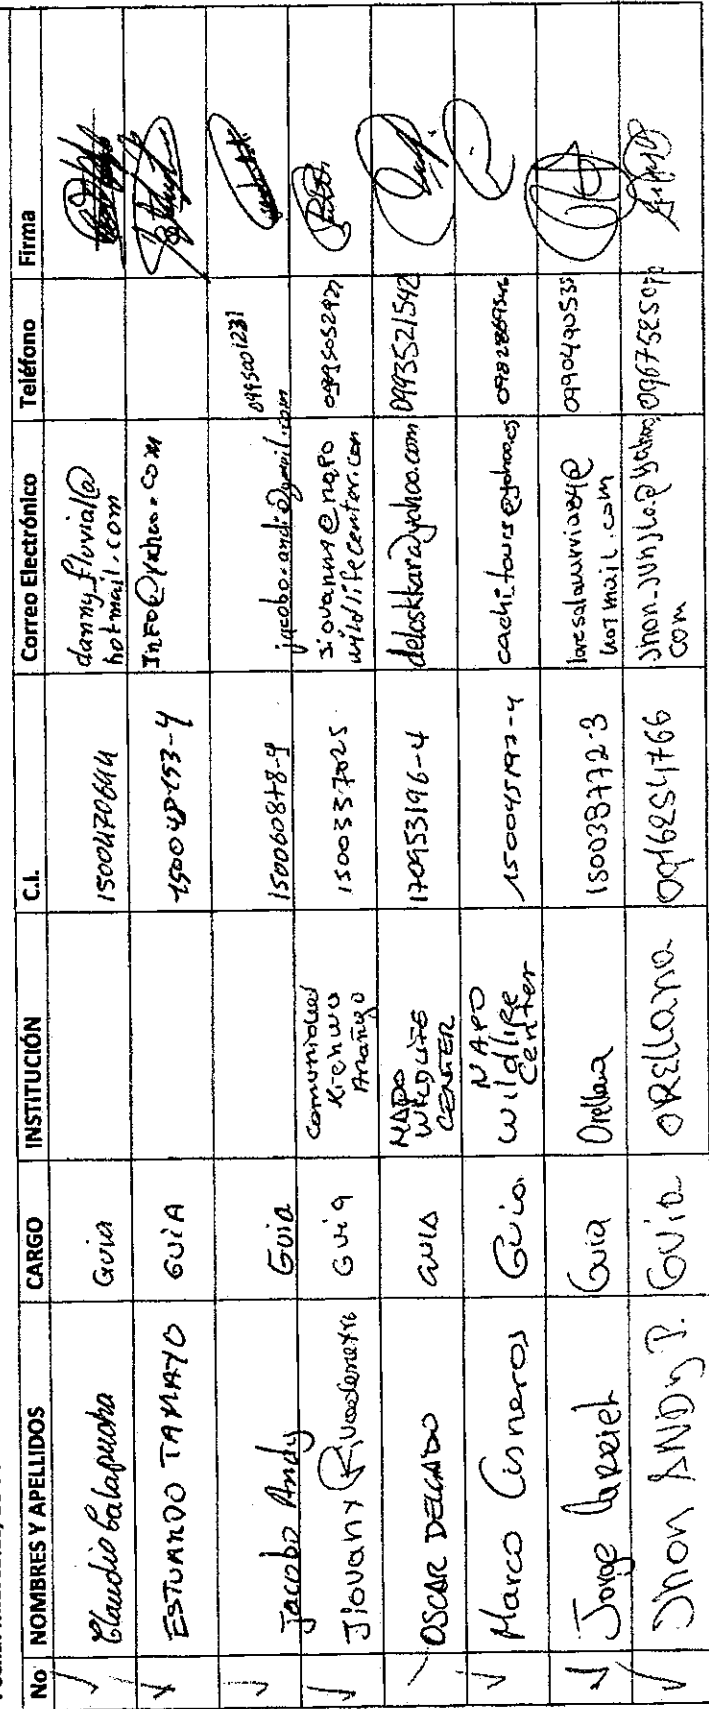 No NOMBRES Y APELLIDOS CARGO INSTITUCIÓN C.I. Correo Electrónico Teléfono Firma
Claudio Calapucha Guia 1500470644 danny_fluvial@
hotmail.com
ESTUARDO TAMAYO GUIA INFO@yahoo.com
Jacobo Andy Guia 150060878-9 jacobo.andi@gmail.com 0995001231
Jiovany Rivadeneyra Guia Comunidad
Kichwa
Añangu
1500337025 Jiovanny@napo
wildlifecenter.com
OSCAR DELGADO GUIA NAPO
WILDLIFE
CENTER
170953196-4 deloskkar@yahoo.com 0993521542
Marco Cisneros Guia. NAPO
Wildlife
Center
150045197-4 cachi_tours@yahoo.es 0982869546
Jorge Guia Orellana 150038772-3
hotmail.com
099049053
Jhon ANDY P. Guia ORELLANA 0916254766
com
0967585070